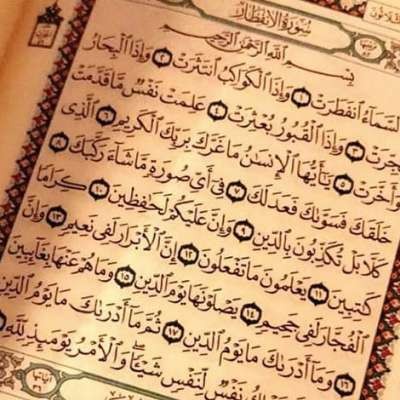 سُورَةُ الانفِطَارِ
بِسْمِ اللَّهِ الرَّحْمَٰنِ الرَّحِيمِ
ٱلسَّمَآءُ ٱنفَطَرَتْ ١ وَإِذَا ٱلْكَوَاكِبُ ٱنتَثَرَتْ ٢ وَإِذَا ٱلْبِحَارُ
فُجِّرَتْ ٣ وَإِذَا ٱلْقُبُورُ بُعْثِرَتْ ٤ عَلِمَتْ نَفْسٌ مَّا قَدَّمَتْ
وَأَخَّرَتْ ٥ يَٰٓأَيُّهَا ٱلْإِنسَٰنُ مَا غَرَّكَ بِرَبِّكَ ٱلْكَرِيمِ ٦ ٱلَّذِى
خَلَقَكَ فَسَوَّىٰكَ فَعَدَلَكَ ٧ فِىٓ أَىِّ صُورَةٍ مَّا شَآءَ رَكَّبَكَ ٨
كَلَّا بَلْ تُكَذِّبُونَ بِٱلدِّينِ ٩ وَإِنَّ عَلَيْكُمْ لَحَٰفِظِينَ ١٠ كِرَامًا
كَٰتِبِينَ ١١ يَعْلَمُونَ مَا تَفْعَلُونَ ١٢ إِنَّ ٱلْأَبْرَارَ لَفِى نَعِيمٍ ١٣ وَإِنَّ
ٱلْفُجَّارَ لَفِى جَحِيمٍ ١٤ يَصْلَوْنَهَا يَوْمَ ٱلدِّينِ ١٥ وَمَا هُمْ عَنْهَا بِغَآئِبِينَ
١٦ وَمَآ أَدْرَىٰكَ مَا يَوْمُ ٱلدِّينِ ١٧ ثُمَّ مَآ أَدْرَىٰكَ مَا يَوْمُ ٱلدِّينِ
نَفْسٌ لِّنَفْسٍ شَيْـًٔا وَٱلْأَمْرُ يَوْمَئِذٍ لِّلَّهِ